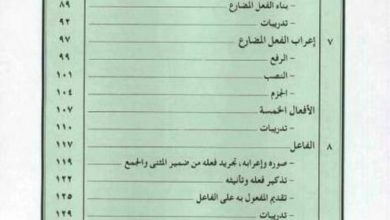 - بناء الفعل المضارع ٨٩
- تدريبات ٩٢
٧ إعراب الفعل المضارع ٩٧
- الرفع ٩٩
- النصب ١٠١
- الجزم ١٠٤
الأفعال الخمسة ١٠٧
- تدريبات ١١٠
٨ الفاعل ١١٧
- صوره وإعرابه، تجريد فعله من ضمير المثنى والجمع ١١٩
- تذكير فعله وتأنيثه ١٢٢
- تقديم المفعول به على الفاعل ١٢٥
- تدريبات ١٢٩